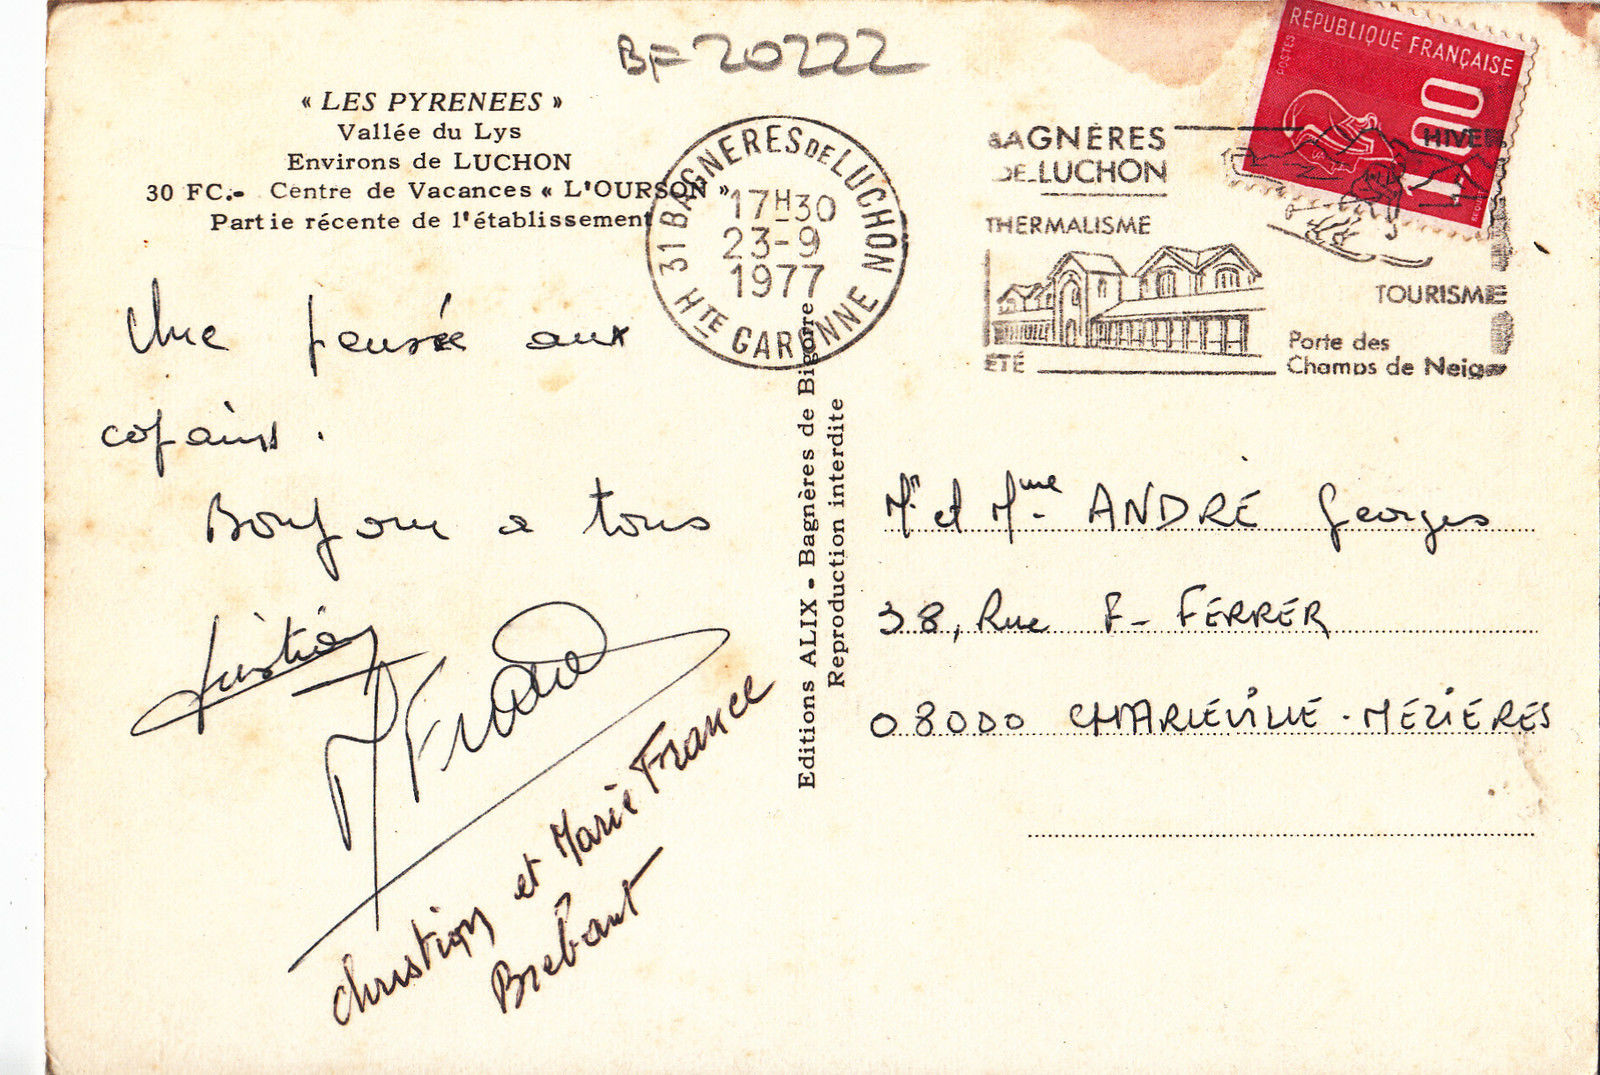 BF 20222
« LES PYRENEES »
Vallée du Lys
Environs de LUCHON
30 FC.- Centre de Vacances « L'OURSON »
Partie récente de l'établissement
31 BAGNERES DE LUCHON
17H30
23-9
1977
HTE GARONNE
REPUBLIQUE FRANÇAISE
POSTES
1,00
BAGNÈRES
DE LUCHON
HIVER
THERMALISME
TOURISME
ÉTÉ
Porte des
Champs de Neige
Une pensée aux
copains.
Bonjour a tous
Christian
M France
Christian et Marie France
Brebant
Editions ALIX - Bagnères de Bigorre
Reproduction interdite
Mr et Mme ANDRÉ Georges
38, Rue F- FERRER
08000 CHARLEVILLE-MÉZIÈRES